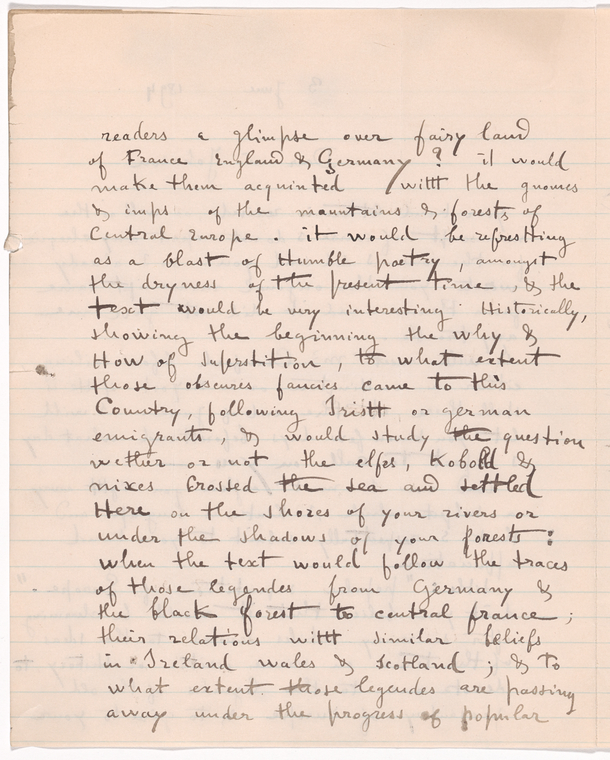 readers a glimpse over fairy land
of France England & Germany ? it would
make them acquinted with the gnomes
& imps of the mauntains & forests of
Central Europe . it would be refreshing
as a blast of Humble poetry , amongst
the dryness of the present time , & the
text would be very interesting Historically,
showing the beginning the why &
How of Superstition , to what extent
those obscures fancies came to this
Country, following Irish or german
emigrants , & would study the question
wether or not the elfes, Kobold &
nixes Crossed the sea and settled
Here on the shores of your rivers or
under the shadows of your forests :
when the text would follow the traces
of those legendes from Germany &
the black forest to central france ;
their relations with similar beliefs
in Ireland wales & Scotland ; & To
what extent those legendes are passing
away under the progress of popular